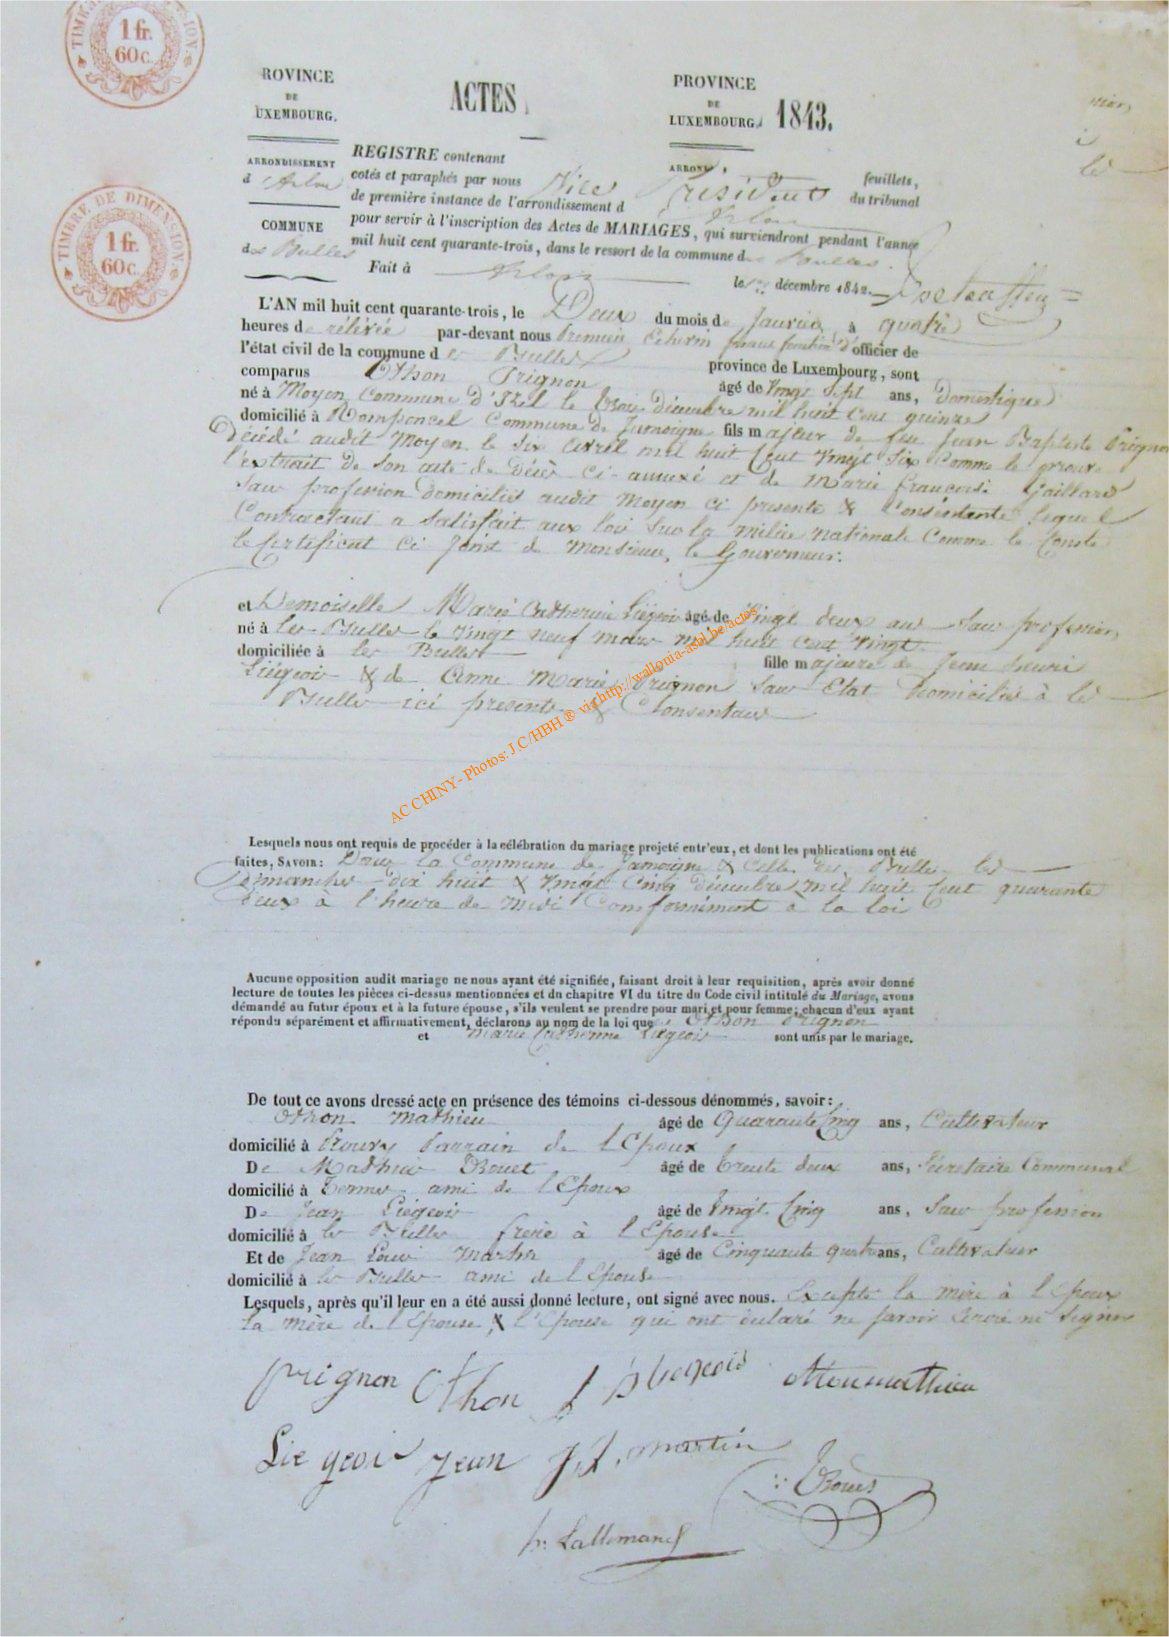 TIMBRE DE DIMENSION
1 fr.
60 c.
TIMBRE DE DIMENSION
1 fr.
60 c.
ROVINCE
DE
UXEMBOURG.
ARRONDISSEMENT
d'Arlon
COMMUNE
des Bulles
ACTES
PROVINCE
DE
LUXEMBOURG.
1843.
REGISTRE contenant
ARROND
feuillets,
cotés et paraphés par nous Vice Président du tribunal
de première instance de l'arrondissement d Arlon
pour servir à l'inscription des Actes de MARIAGES, qui surviendront pendant l'année
mil huit cent quarante-trois, dans le ressort de la commune des Bulles.
Fait à Arlon le décembre 1842.
L'AN mil huit cent quarante-trois, le Deux du mois de Janvier, à quatre
heures de rélévée par-devant nous Premier Echevin faisant fonction d'officier de
l'état civil de la commune des Bulles province de Luxembourg, sont
comparus Othon Prignon âgé de Vingt Sept ans, Domestique
né à Moyen Commune d'Izel le trois décembre mil huit cent quinze
domicilié à Romponcel Commune de Jamoigne fils majeur de feu Jean Baptiste Prignon
Décédé audit Moyen le six avril mil huit Cent Vingt six comme le prouve
l'extrait de son acte de Décès ci-annexé et de Marie françoise Gaillard
Saus profession domiciliée audit Moyen ci presente & Consentante lequel
Contractant a satisfait aux lois sur la milice nationale Comme le Conste
le Certificat Ci joint de Monsieur le Gouverneur.
et Demoiselle Marie Catherine Liégeois âgé de Vingt deux ans Saus profession
né à les Bulles le Vingt neuf mars mil huit cent Vingt
domiciliée à les Bulles fille majeure de Jean henri
Liégeois & de Anne Marie Prignon Saus Etat Domiciliés à les
Bulles ici presents & Consentans
AC CHINY - Photos: J.C/HBH ® via http://wallonia-asbl.be/actes
Lesquels nous ont requis de procéder à la célébration du mariage projeté entr'eux, et dont les publications ont été
faites, SAVOIR: Dans la Commune de Jamoigne & Celle des Bulles les
Dimanches dix huit & Vingt Cinq décembre mil huit Cent quarante
deux à l'heure de Midi Conformément à la loi
Aucune opposition audit mariage ne nous ayant été signifiée, faisant droit à leur requisition, après avoir donné
lecture de toutes les pièces ci-dessus mentionnées et du chapitre VI du titre du Code civil intitulé du Mariage, avons
démandé au futur époux et à la future épouse, s'ils veulent se prendre pour mari et pour femme; chacun d'eux ayant
répondu séparément et affirmativement, déclarons au nom de la loi que Othon Prignon
et Marie Catherine Liégeois sont unis par le mariage.
De tout ce avons dressé acte en présence des témoins ci-dessous dénommés, savoir:
Othon Mathieu âgé de Quarante Cinq ans, Cultivateur
domicilié à Parrain de l'Epoux
De Mathieu Bouet âgé de trente deux ans, Sécretaire Communal
domicilié à Termes ami de l'Epoux
De Jean Liégeois âgé de Vingt Cinq ans, Saus profession
domicilié à les Bulles frere à l'Epouse
Et de Jean Louis Martin âgé de Cinquante quatre ans, Cultivateur
domicilié à les Bulles ami de l'Epouse
Lesquels, après qu'il leur en a été aussi donné lecture, ont signé avec nous. Excepté la mère à l'Epoux
la mère de l'Epouse & l'Epouse qui ont déclaré ne savoir écrire ni signer
prignon Othon Liegeois
Liegeois Jean J.L. martin
h. Lallemand